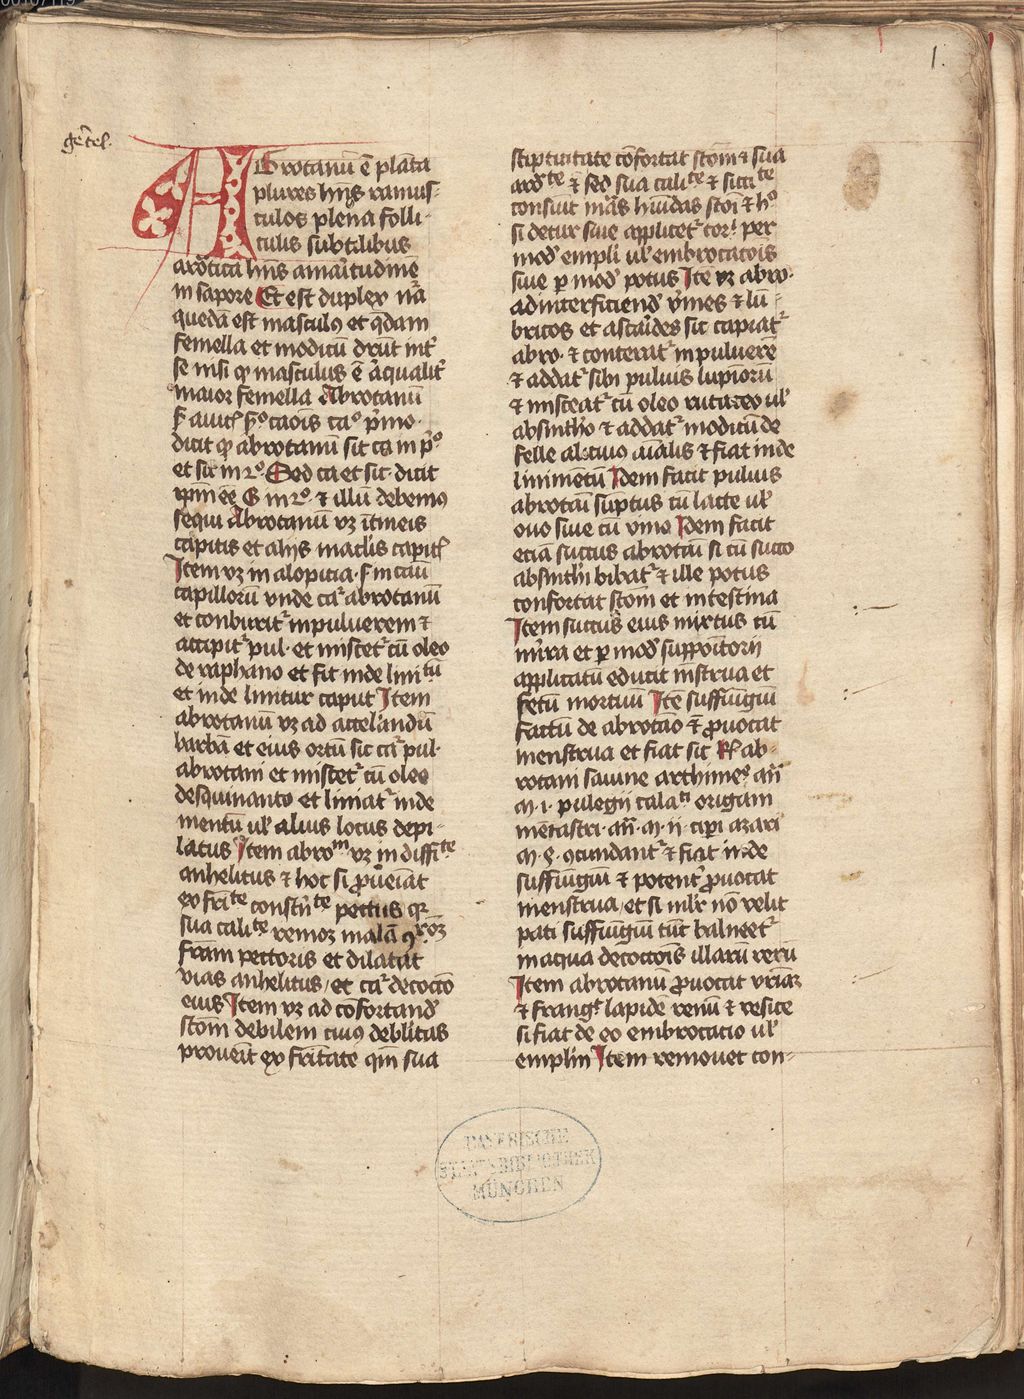 1.
gertel.
ABrotanū ē plāta
plures hn̄s ramus-
culos plena folli-
culis subtilibus
arōtica hn̄s amaritudinē
in sapore Et est duplex nā
quedā est masculꝰ et q̄dam
femella et modicū dr̄nt int᷑
se nisi ꝙ masculus ē aqualit᷑
maior femella Abrotanū
dicit ꝙ abrotanū sit ca in pº
et sic in 2º Sed ca et sic dicit
ip̄m eē in 2º ⁊ illū debemꝰ
sequi Abrotanū vꝫ
capitis et alijs
Item vꝫ in alopicia
capillorū vnde ca᷑ abrotanū
et conburit᷑ in puluerem ⁊
accipit᷑ pul· et miscet᷑ cū oleo
de raphano et fit inde limitū
et inde linitur caput Item
abrotanū vꝫ ad accelerandū
barbā et eius ortū sic ca᷑ pul·
abrotani et miscet᷑ cū oleo
desquinanto et liniat᷑ inde
mentū ul᷑ alius locus depi-
latus Item abroᵐ vꝫ in diffiᵗᵉ
anhelitus ⁊ hoc si ꝓueniat
ex friᵗᵉ pectus qꝛ
sua caliᵗᵉ remoꝫ malā
fram pectoris et dilatat
vias anhelitus, et ca᷑ decoctō
eius Item vꝫ ad cōfortandū
stom debilem cuiꝰ deblitas
prouenit ex fritate qm̄ sua
stiptitate cōfortat stom ⁊ sua
⁊ sua caliᵗᵉ ⁊ siccitᵗᵉ
hūidas stoī ⁊ hº
si detur siue applicet᷑ per
modū empli ul᷑ embrocatois
siue ꝑ modū potus Itē vꝫ abro·
ad interficiendū v᷑mes ⁊ lū-
bricos et ascarides sic capiat᷑
abro· ⁊ conterat᷑ in puluerē
⁊ addat᷑ sibi puluis lupinorū
⁊ misceat᷑ cū oleo rutaceo ul᷑
absinthio ⁊ addat᷑ modicū de
felle alicuius aīalis ⁊ fiat inde
linimētū Idem facit puluis
abrotāi suptus cū lacte ul᷑
ouo siue cū vino Idem facit
etiā succus abrotāi si cū succo
absinthii bibat᷑ ⁊ ille potus
confortat stom et intestina
Item succus eius mixtus cū
mirra et ꝑ modū suppoitorii
applicatū educit mēstrua et
fetū mortuū Itē suffūigiū
factū de abrotāo ⁊ ꝓuocat
menstrua et fiat sic R᷑ ab-
rotani sauine arthimes᷑ añ
m̄· i· pulegii calaⁿ origani
mētastri· añ· m̄· ii· cipi azari
m̄· ꝯtundant᷑ ⁊ fiat inde
suffūigiū ⁊ potent᷑ ꝓuocat
menstrua, et si mlr̄ nō velit
pati suffūigiū tūc balneet᷑
in aqua decoctois illarū rerū
Item abrotanū ꝓuocat vrinā
⁊ frangit lapidē renū ⁊ vesice
si fiat de eo embrocacio ul᷑
emplm Item remouet con-
BAYERISCHE
STAATSBIBLIOTHEK
MÜNCHEN